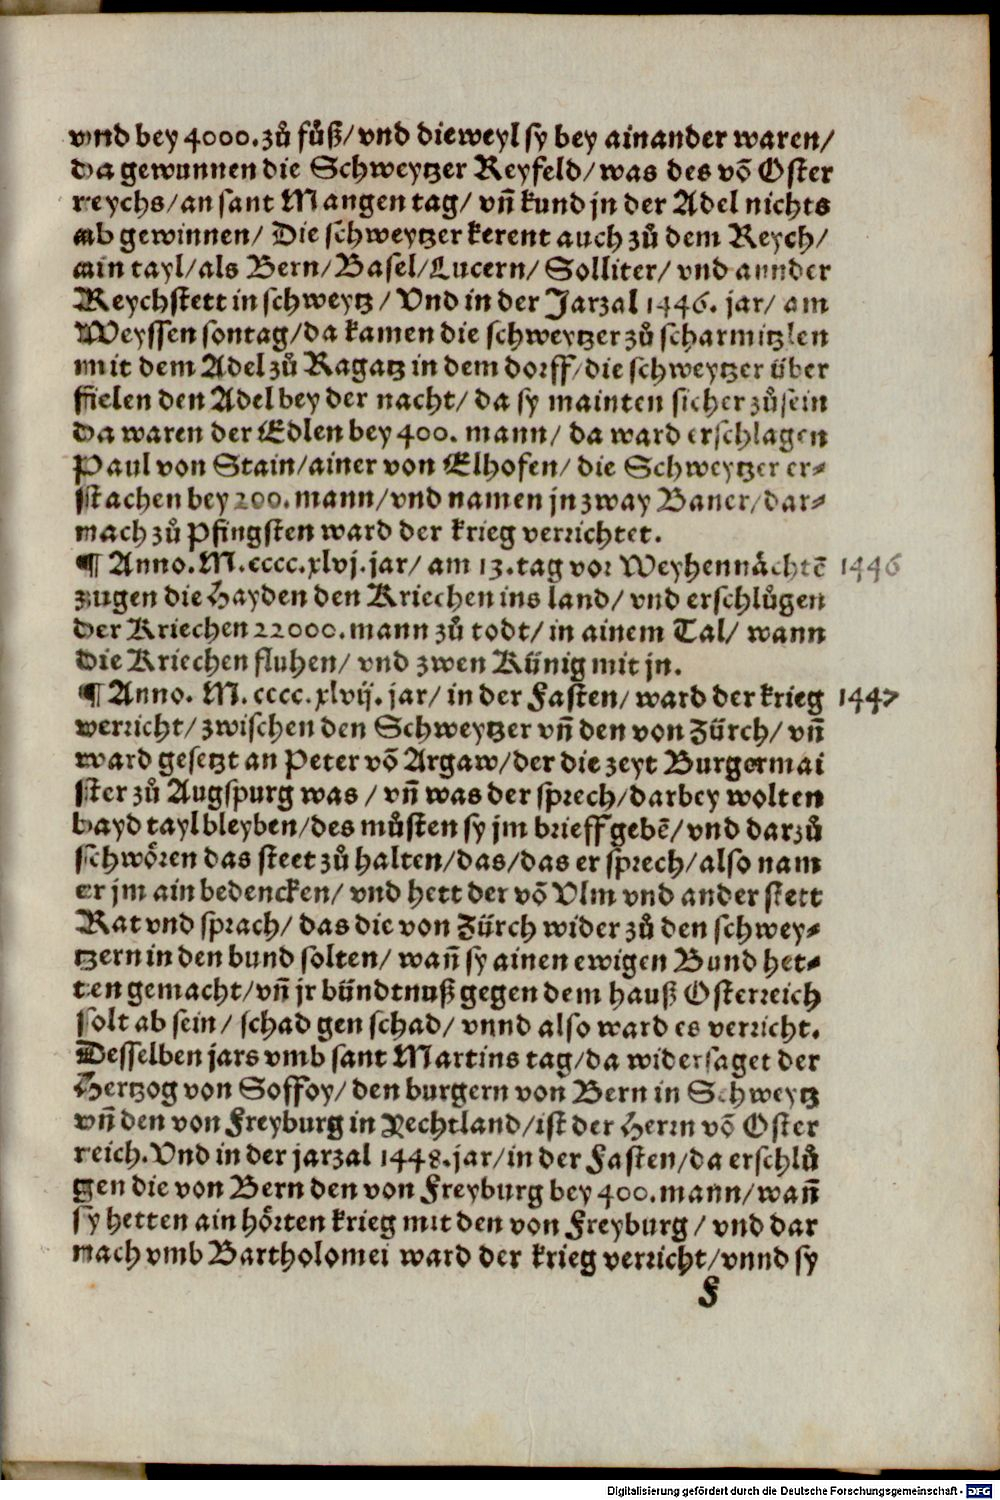 vnd bey 4000. zů fůß/ vnd dieweyl sy bey ainander waren/
da gewunnen die Schweytzer Reyfeld/ was des võ Oster
reychs/ an sant Mangen tag/ vñ kund jn der Adel nichts
ab gewinnen/ Die schweytzer kerent auch zů dem Reych/
ain tayl/ als Bern/ Basel/ Lucern/ Solliter/ vnd annder
Reychstett in schweytz/ Vnd in der Jarzal 1446. jar/ am
Weyssen sontag/ da kamen die schweytzer zů scharmitzlen
mit dem Adel zů Ragatz in dem dorff/ die schweytzer über
fielen den Adel bey der nacht/ da sy mainten sicher zůsein
da waren der Edlen bey 400. mann/ da ward erschlagen
Paul von Stain/ ainer von Elhofen/ die Schweytzer er⸗
stachen bey 200. mann/ vnd namen jn zway Baner/ dar⸗
nach zů Pfingsten ward der krieg verrichtet.
¶ Anno. M. cccc. xlvj. jar/ am 13. tag vor Weyhennåchtẽ 1446
zugen die Hayden den Kriechen ins land/ vnd erschlůgen
der Kriechen 22000. mann zů todt/ in ainem Tal/ wann
die Kriechen fluhen/ vnd zwen Künig mit jn.
¶ Anno. M. cccc. xlvij. jar/ in der Fasten/ ward der krieg 1447
verricht/ zwischen den Schweytzer vñ den von Zürch/ vñ
ward gesetzt an Peter võ Argaw/ der die zeyt Burgermai
ster zů Augspurg was/ vñ was der sprech/ darbey wolten
bayd tayl bleyben/ des můsten sy jm brieff gebẽ/ vnd darzů
schwören das steet zů halten/ das/ das er sprech/ also nam
er jm ain bedencken/ vnd hett der võ Vlm vnd ander stett
Rat vnd sprach/ das die von Zürch wider zů den schwey⸗
tzern in den bund solten/ wañ sy ainen ewigen Bund het⸗
ten gemacht/ vñ jr bündtnuß gegen dem hauß Osterreich
solt ab sein/ schad gen schad/ vnnd also ward es verricht.
Desselben jars vmb sant Martins tag/ da widersaget der
Hertzog von Soffoy/ den burgern von Bern in Schweytz
vñ den von Freyburg in Yechtland/ ist der Herrn võ Oster
reich. Vnd in der jarzal 1448. jar/ in der Fasten/ da erschlů
gen die von Bern den von Freyburg bey 400. mann/ wañ
sy hetten ain hörten krieg mit den von Freyburg/ vnd dar
nach vmb Bartholomei ward der krieg verricht/ vnnd sy
F
Digitalisierung gefördert durch die Deutsche Forschungsgemeinschaft - DFG